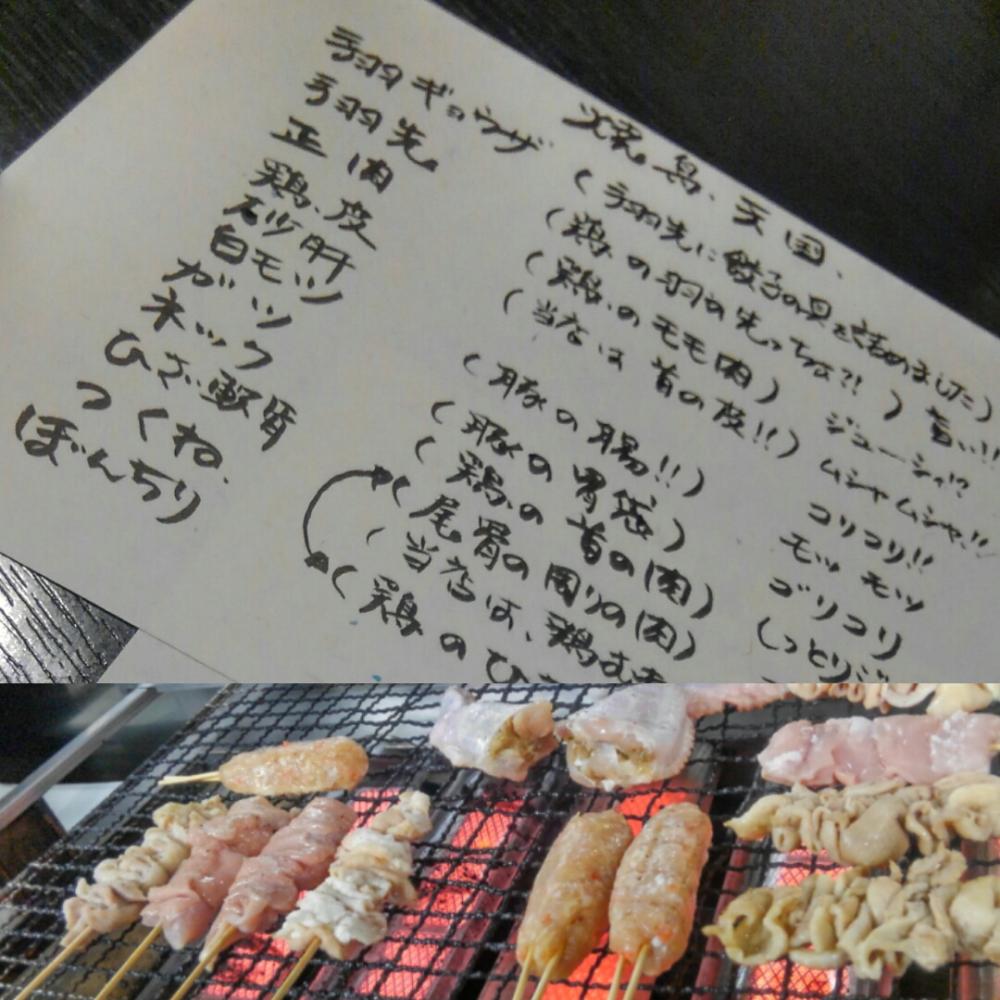 焼鳥、天国、
手羽ギョウザ (手羽先に餃子の具を詰めました) 旨い!!
手羽先 (鶏の羽の先っちょ?!) ジューシィ!?
正肉 (鶏のモモ肉) ムシャムシャ!!
鶏皮 (当店は首の皮!!) コリコリ!!
砂肝
白モツ (豚の腸!!) モッツモッツ
ガツ (豚の胃袋) ゴリコリ
ネック (鶏の首の肉) しっとりジ
ひざ軟骨 (尾骨の周りの肉)
つくね (当店は、鶏むね
ぼんちり (鶏のひ